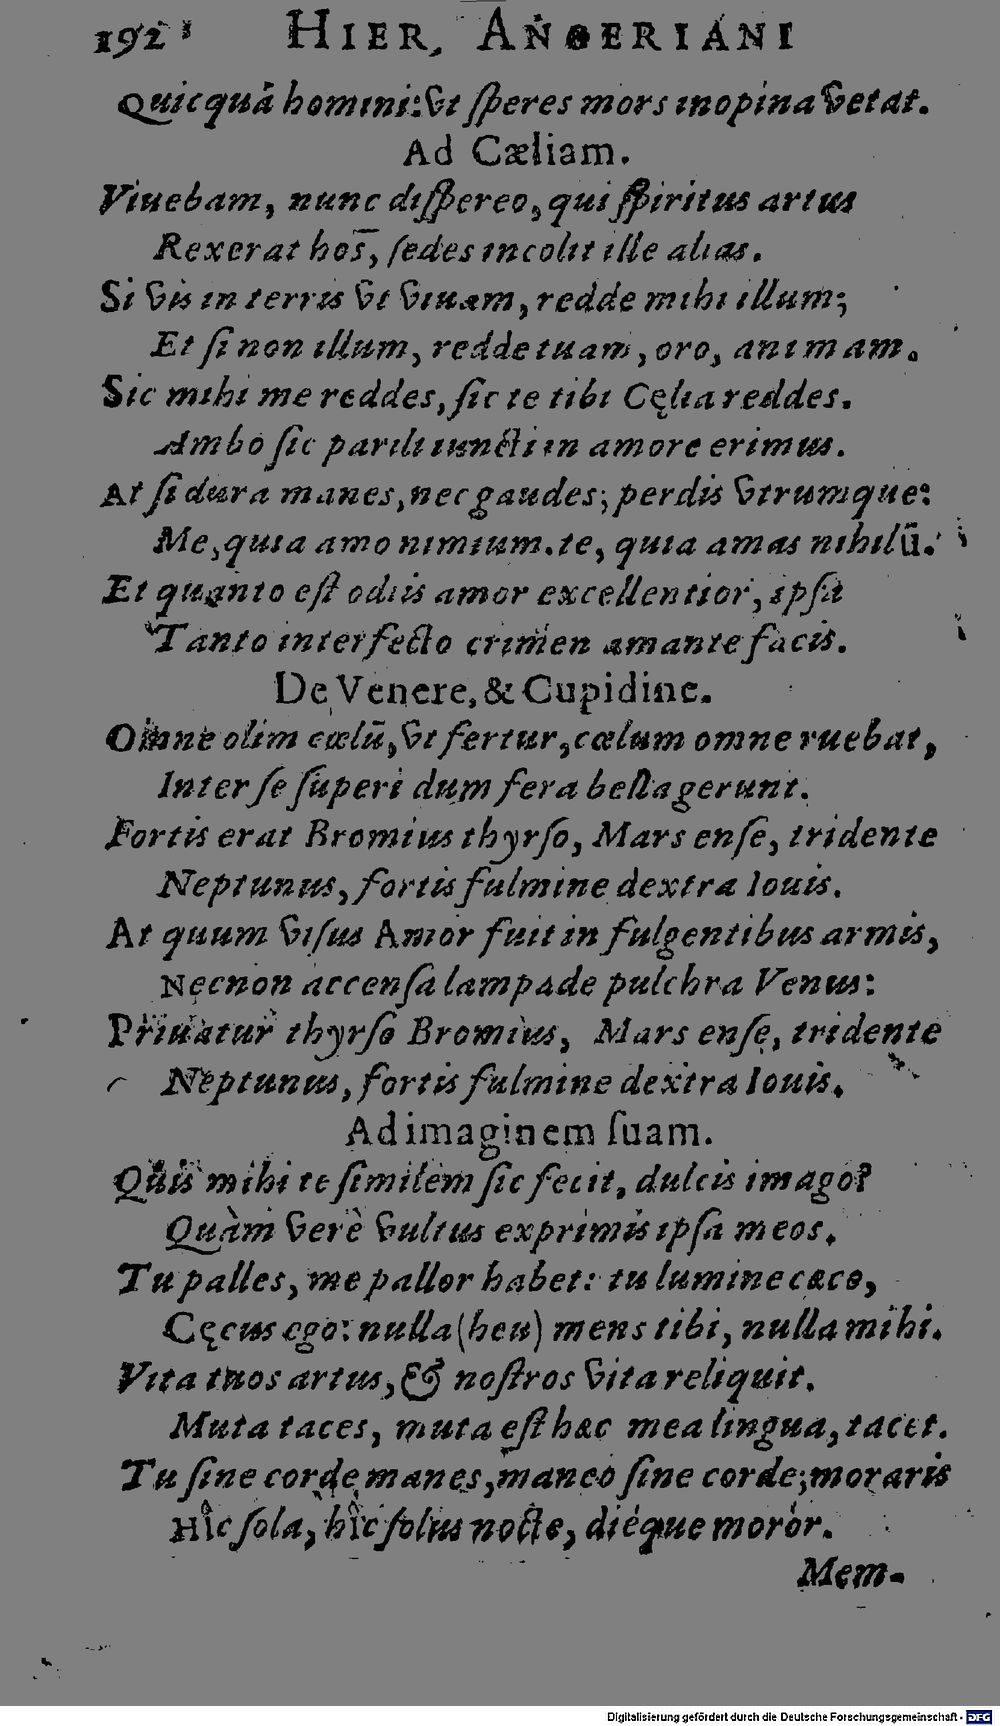 192 HIER, ANGERIANI
Quicquā homini: vt ſperes mors inopina vetat.
Ad Cæliam.
Viuebam, nunc diſpereo, qui ſpiritus artus
Rexerat hos, ſedes incolit ille alias.
Si vis in terris vt viuam, redde mihi illum;
Et ſi non illum, redde tuam, oro, animam.
Sic mihi me reddes, ſic te tibi Cęlia reddes.
Ambo ſic parili iuncti in amore erimus.
At ſi dura manes, nec gaudes; perdis vtrumque:
Me, quia amo nimium. te, quia amas nihilū.
Et quanto eſt odiis amor excellentior, ipſa
Tanto interfecto crimen amante facis.
De Venere, & Cupidine.
Omne olim cælū, vt fertur, cælum omne ruebat,
Inter ſe ſuperi dum fera bella gerunt.
Fortis erat Bromius thyrſo, Mars enſe, tridente
Neptunus, fortis fulmine dextra Iouis.
At quum viſus Amor fuit in fulgentibus armis,
Necnon accenſa lampade pulchra Venus:
Priuatur thyrſo Bromius, Mars enſe, tridente
Neptunus, fortis fulmine dextra Iouis.
Ad imaginem ſuam.
Quis mihi te ſimilem ſic fecit, dulcis imago?
Quàm verè vultus exprimis ipſa meos.
Tu palles, me pallor habet: tu lumine cæco,
Cęcus ego: nulla (heu) mens tibi, nulla mihi.
Vita tuos artus, & noſtros vita reliquit.
Muta taces, muta eſt hæc mea lingua, tacet.
Tu ſine corde manes, maneo ſine corde; moraris
Hîc ſola, hîc ſolus nocte, diéque moror.
Mem-
Digitalisierung gefördert durch die Deutsche Forschungsgemeinschaft - DFG